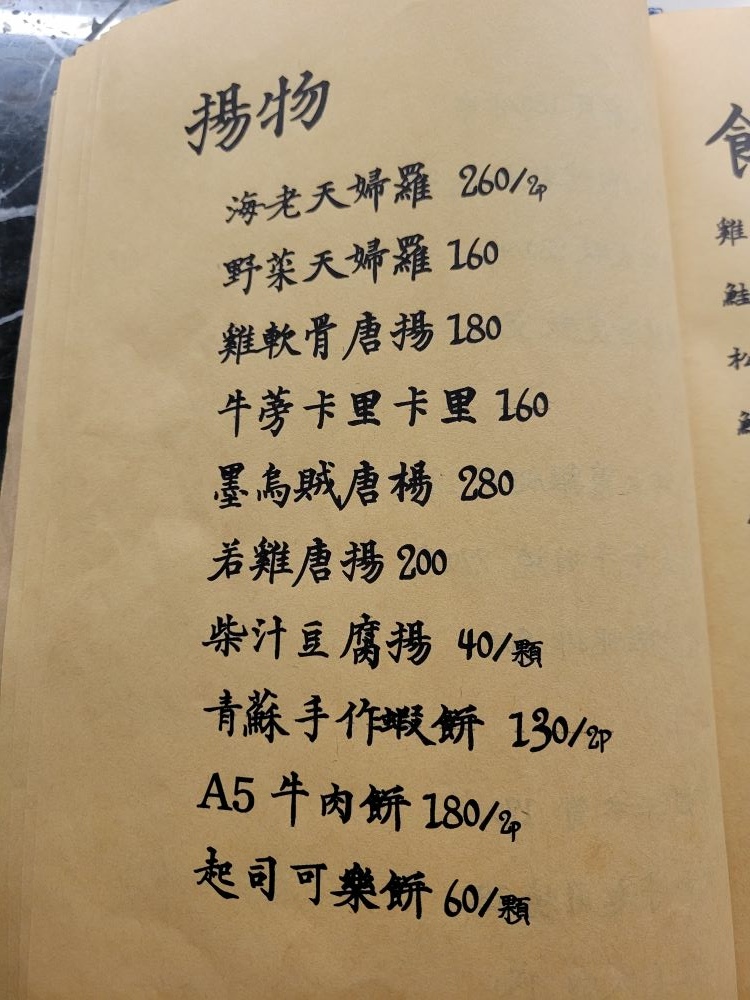 揚物
海老天婦羅 260/2p
野菜天婦羅 160
雞軟骨唐揚 180
牛蒡卡里卡里 160
墨烏賊唐楊 280
若雞唐揚 200
柴汁豆腐揚 40/顆
青蘇手作蝦餅 130/2P
A5 牛肉餅 180/2p
起司可樂餅 60/顆
雞
鮭